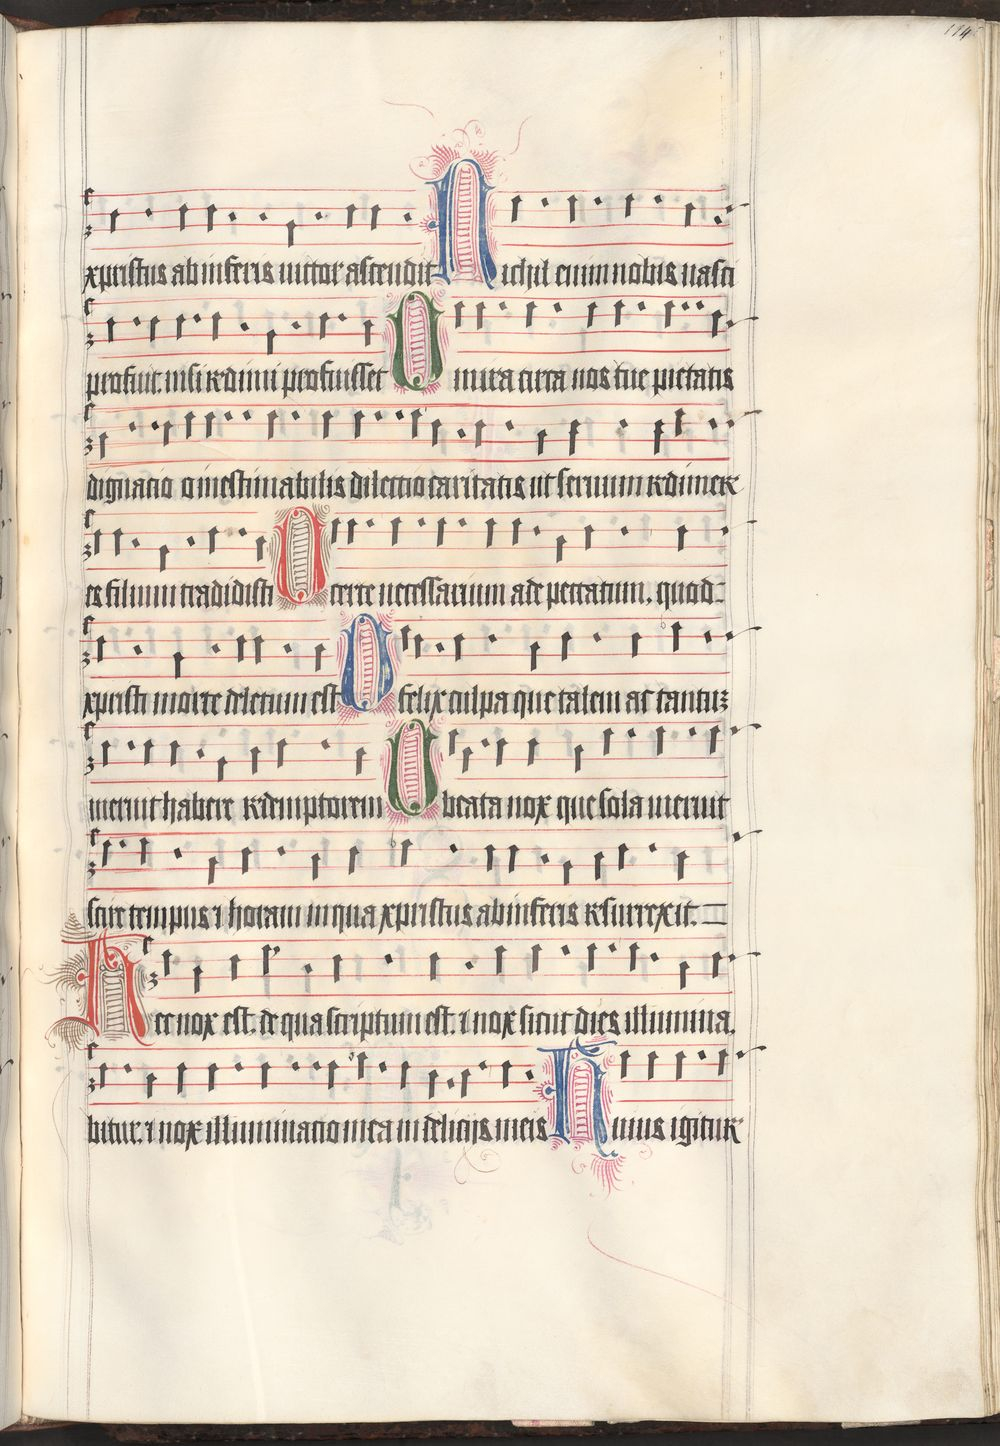 114
xpristus ab inferis victor ascendit Nichil enim nobis nasci
profuit. nisi redimi profuisset O mira circa nos tue pietatis
dignatio o inestimabilis dilectio caritatis ut servum redimer
es filium tradidisti O certe necessarium ade peccatum. quod
xpristi morte deletum est O felix culpa que talem ac tantuz
meruit habere redemptorem O beata nox que sola meruit
scire tempus ⁊ horam in qua xpristus ab inferis resurrexit.
Hec nox est. de qua scriptum est. ⁊ nox sicut dies illumina,
bitur. ⁊ nox illuminatio mea in delicijs meis Huius igitur